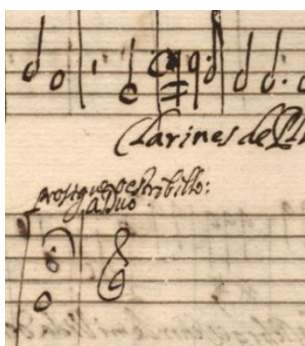 Clarines de
prosigue el estribillo:
a Duo